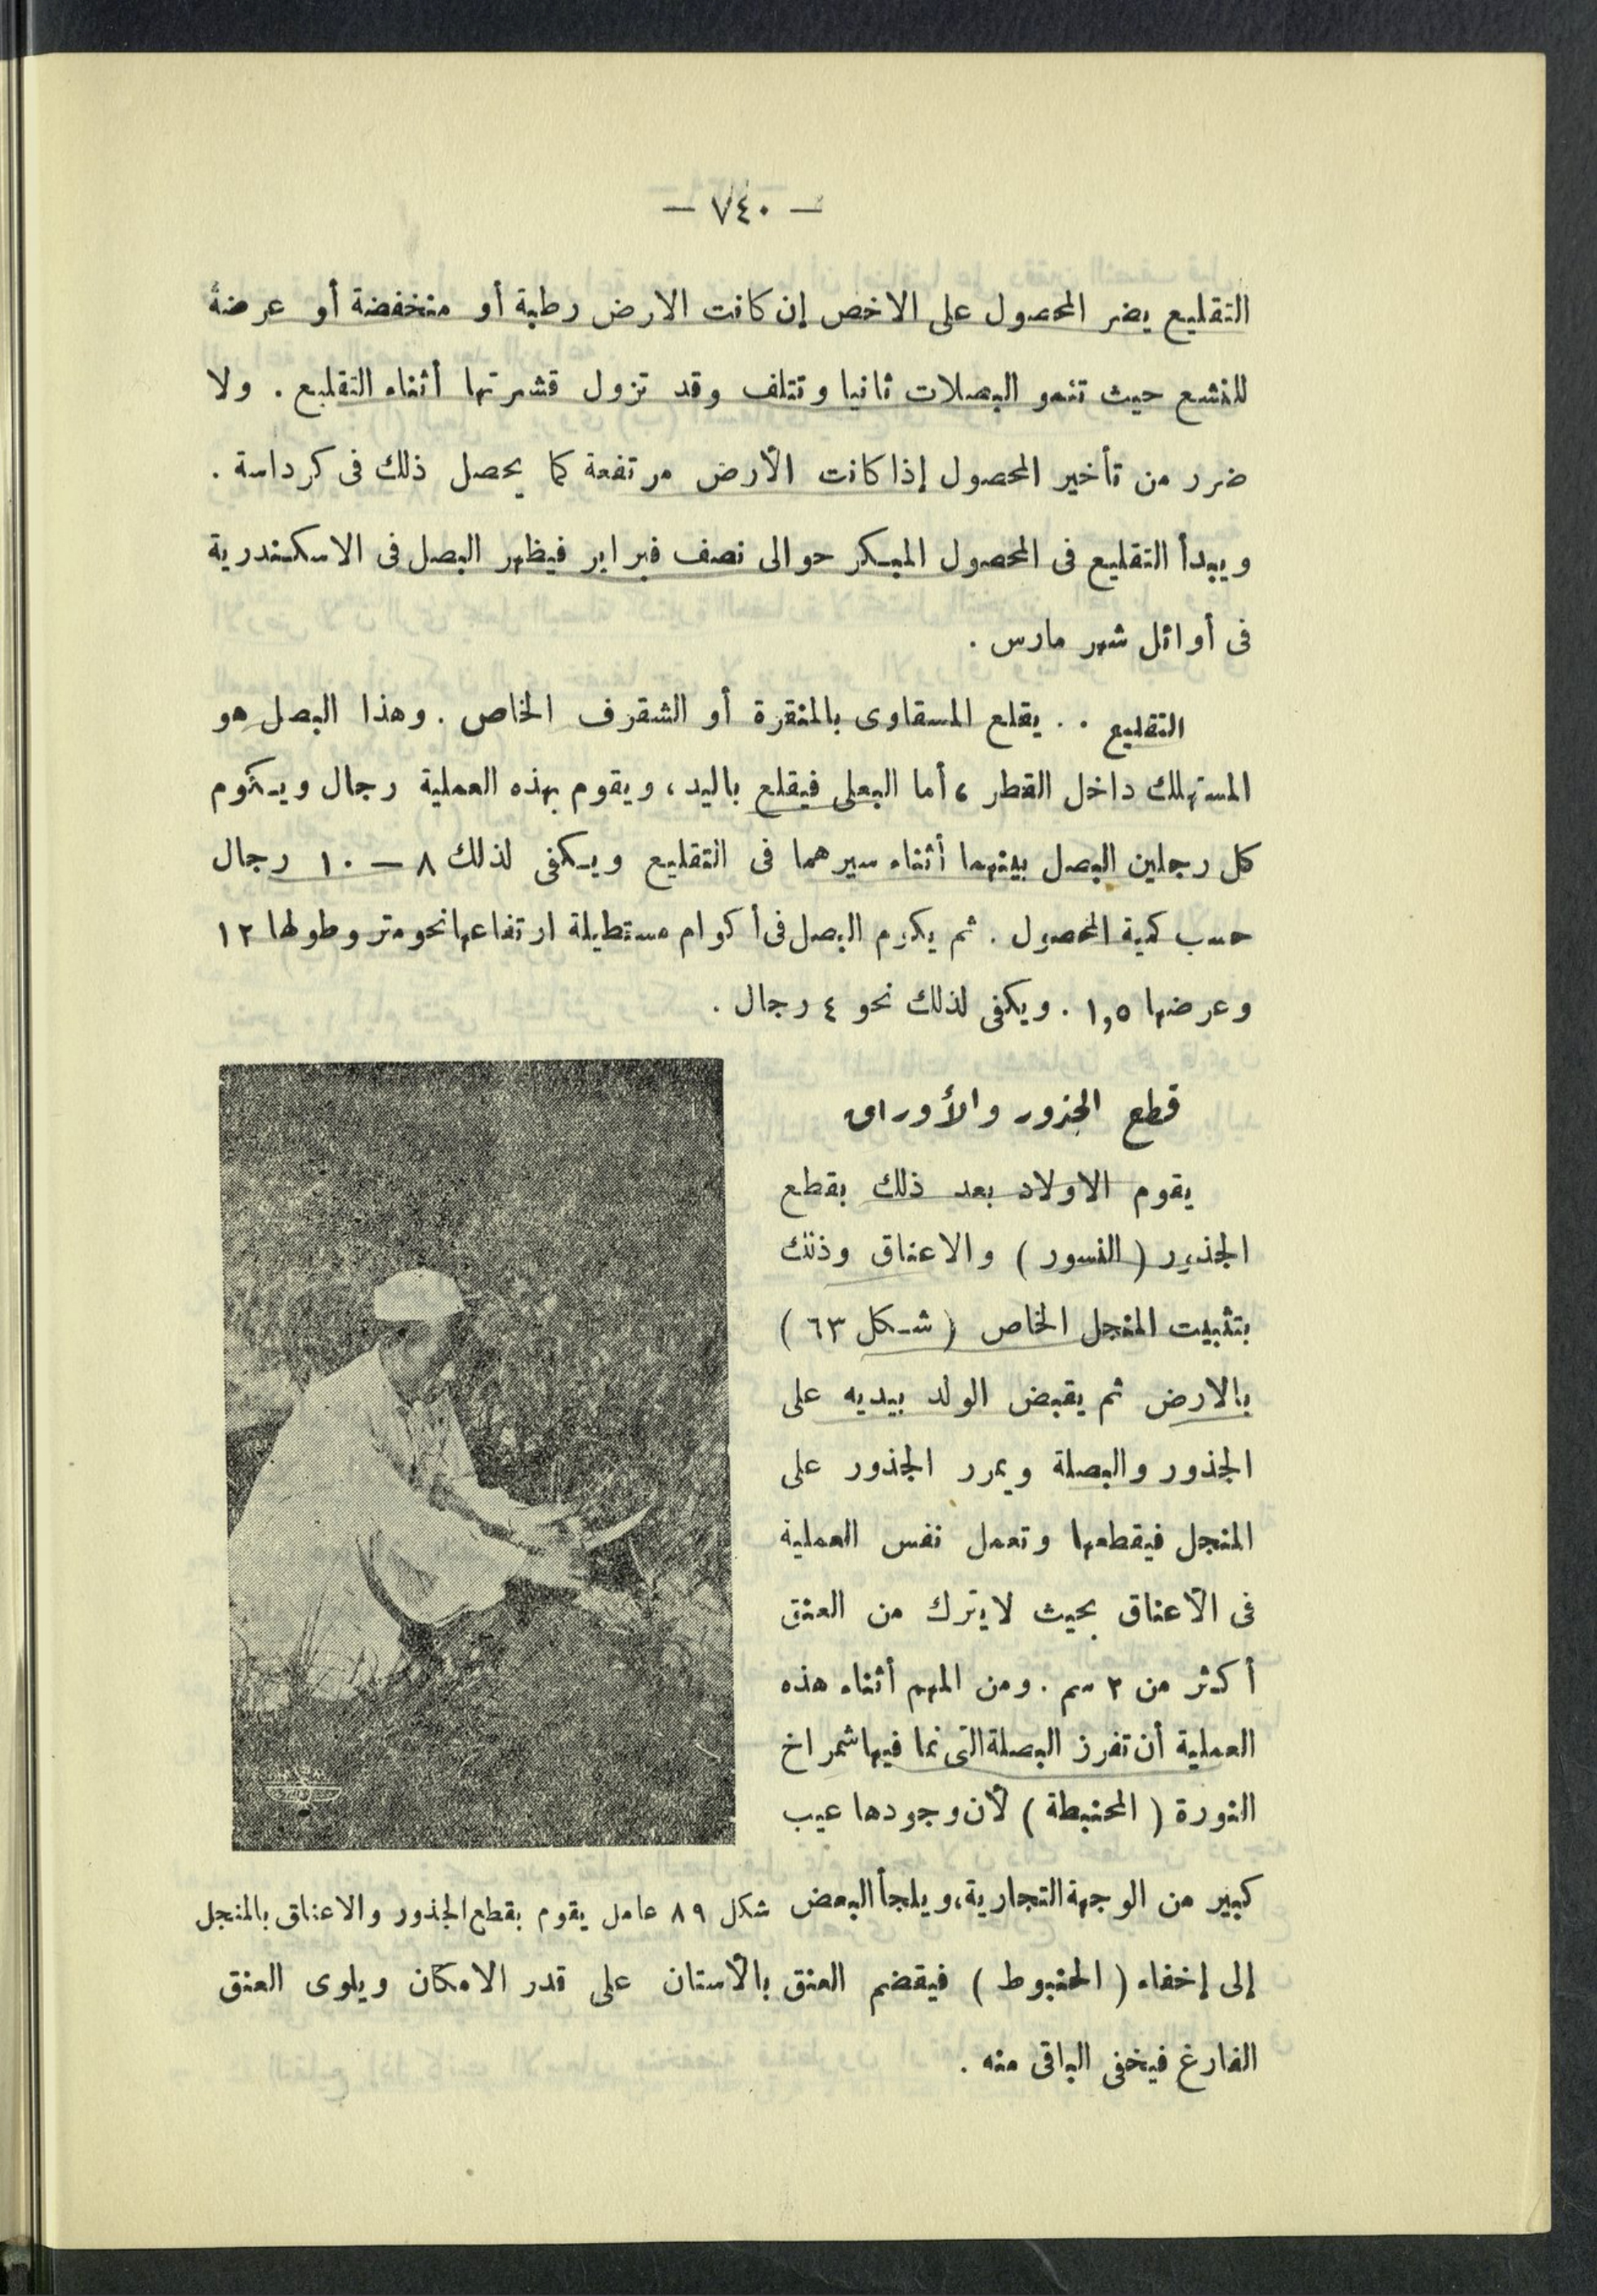 — ٧٤٠ —
التقليع يضر المحصول على الاخص إن كانت الارض رطبة أو منخفضة أو عرضة
للنشع حيث تنمو البصلات ثانيا وتتلف وقد تزول قشرتها أثناء التقليع . ولا
ضرر من تأخير المحصول إذا كانت الأرض مرتفعة كما يحصل ذلك فى كرداسة .
ويبدأ التقليع فى المحصول المبكر حوالى نصف فبراير فيظهر البصل فى الاسكندرية
فى أوائل شهر مارس .
التقليع . . يقلع المسقاوى بالمنقرة أو الشقرف الخاص . وهذا البصل هو
المستهلك داخل القطر ، أما البعلى فيقلع باليد ، ويقوم بهذه العملية رجال ويكوم
كل رجلين البصل بينهما أثناء سيرهما فى التقليع ويكفى لذلك ٨ — ١٠ رجال
حسب كمية المحصول . ثم يكوم البصل فى أكوام مستطيلة ارتفاعها نحو متر وطولها ١٢
وعرضها ١,٥ . ويكفى لذلك نحو ٤ رجال .
قطع الجذور والأوراق
يقوم الاولاد بعد ذلك بقطع
الجذور ( النسور ) والاعناق وذلك
بتثبيت المنجل الخاص ( شكل ٦٣ )
بالارض ثم يقبض الولد بيديه على
الجذور والبصلة ويمرر الجذور على
المنجل فيقطعها وتعمل نفس العملية
فى الأعناق بحيث لا يترك من العنق
أكثر من ٢ سم . ومن المهم أثناء هذه
العملية أن تفرز البصلة التى نما فيها شمراخ
النورة ( المحنبطة ) لأن وجودها عيب
كبير من الوجهة التجارية، ويلجأ البعض
شكل ٨٩ عامل يقوم بقطع الجذور والاعناق بالمنجل
إلى إخفاء ( الحنبوط ) فيقضم العنق بالأسنان على قدر الامكان ويلوى العنق
الفارغ فيخفى الباقى منه .